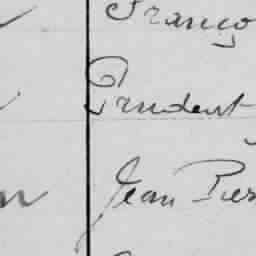 Franço
Prudent
Jean Pier